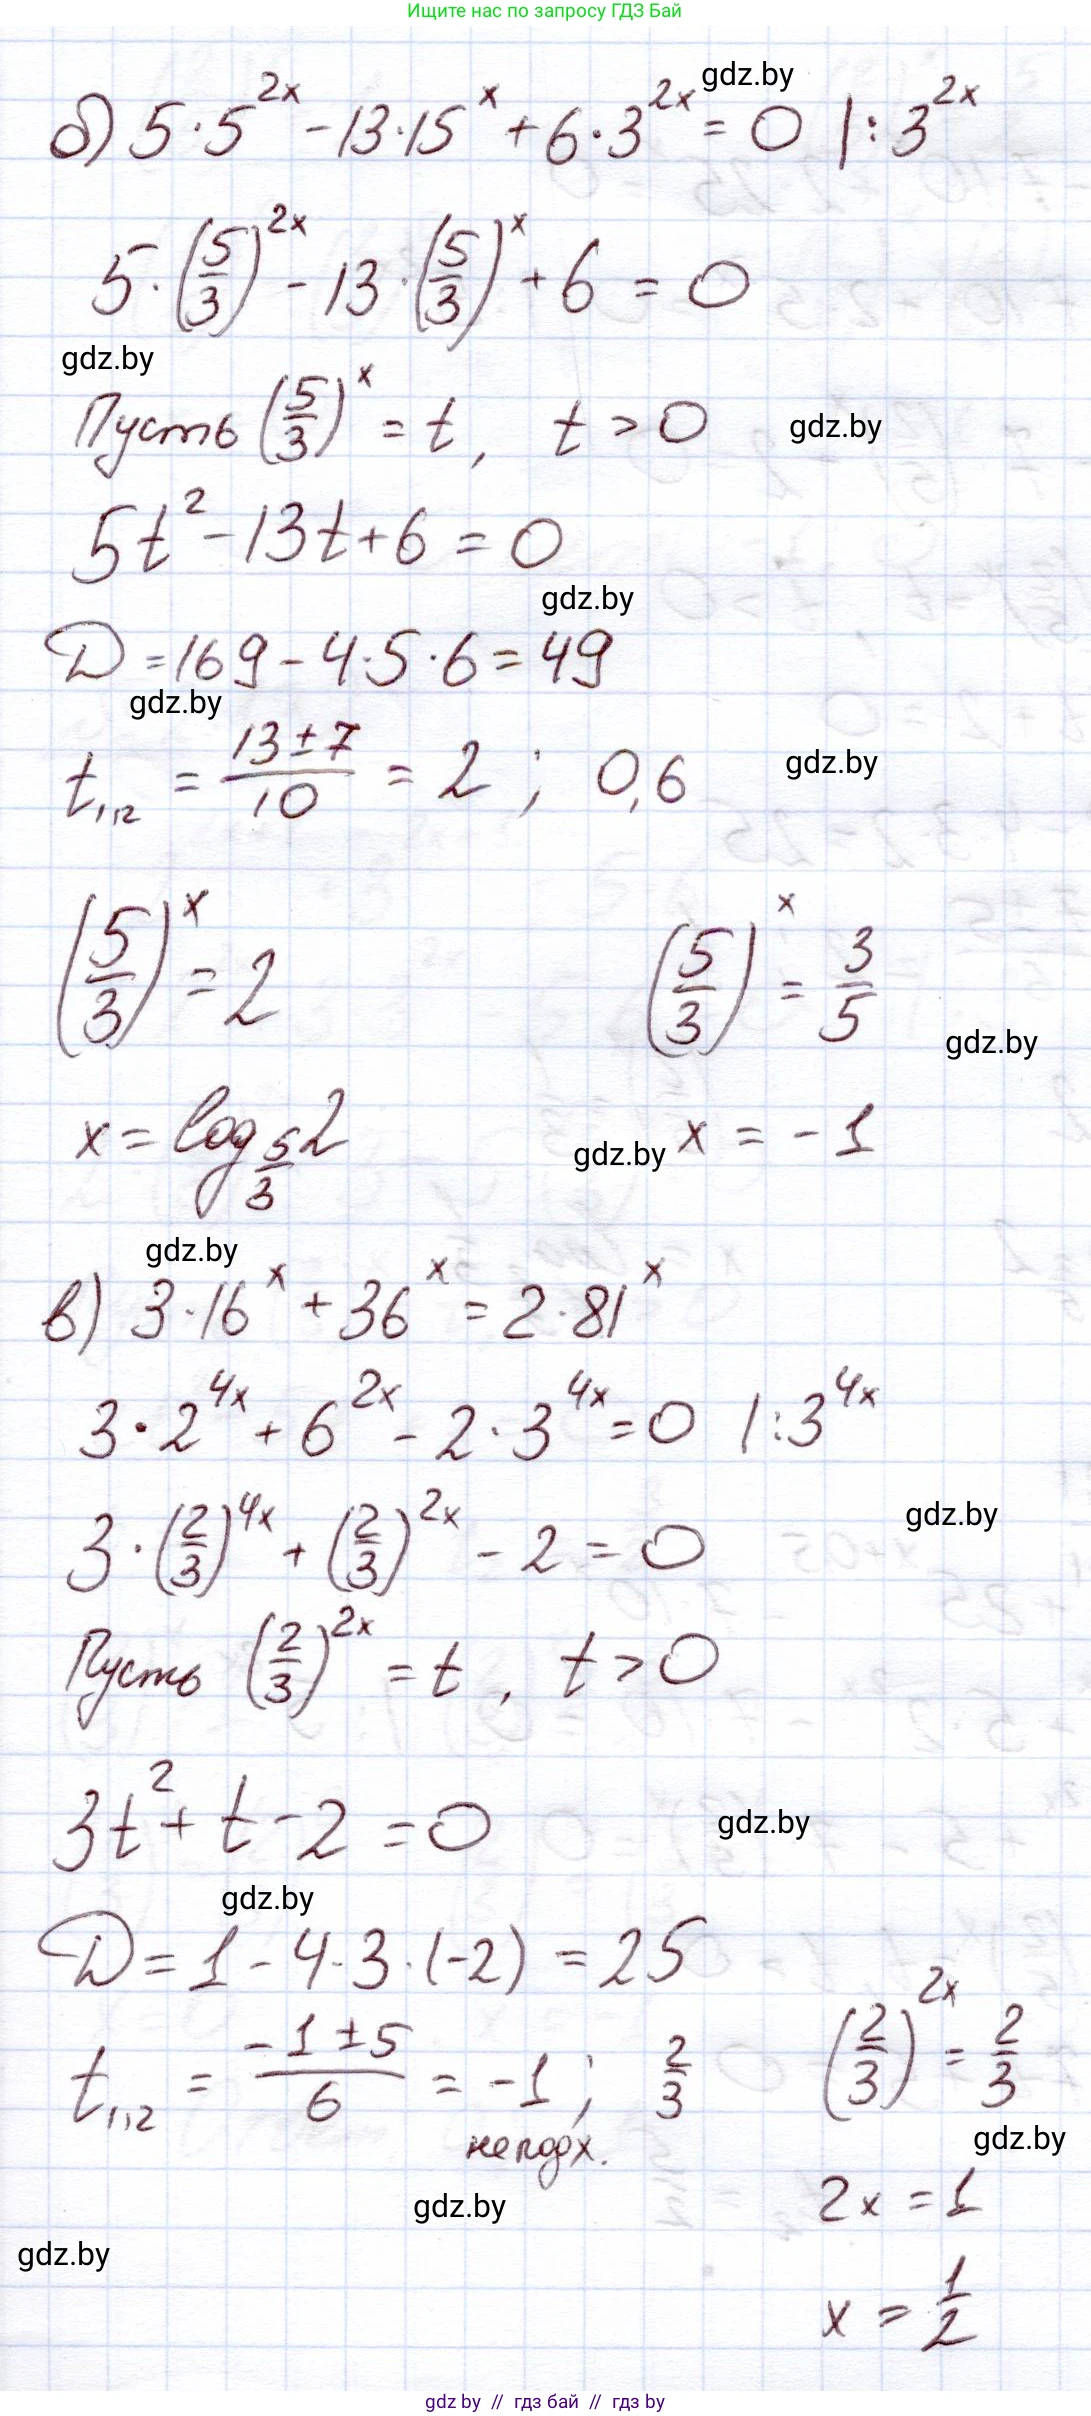 Ищите нас по запросу ГДЗ Бай
gdz.by
б) 5·5^{2x} - 13·15^x + 6·3^{2x} = 0 |:3^{2x}
5·(5/3)^{2x} - 13·(5/3)^x + 6 = 0
gdz.by
Пусть (5/3)^x = t, t > 0
gdz.by
5t² - 13t + 6 = 0
gdz.by
D = 169 - 4·5·6 = 49
gdz.by
t_{1,2} = (13 ± 7)/10 = 2; 0,6
gdz.by
(5/3)^x = 2 (5/3)^x = 3/5
gdz.by
x = log_{5/3} 2 x = -1
gdz.by
gdz.by
в) 3·16^x + 36^x = 2·81^x
3·2^{4x} + 6^{2x} - 2·3^{4x} = 0 |:3^{4x}
gdz.by
3·(2/3)^{4x} + (2/3)^{2x} - 2 = 0
Пусть (2/3)^{2x} = t, t > 0
3t² + t - 2 = 0
gdz.by
gdz.by
D = 1 - 4·3·(-2) = 25
t_{1,2} = (-1 ± 5)/6 = -1; 2/3
не подх.
(2/3)^{2x} = 2/3
gdz.by
2x = 1
gdz.by
gdz.by
x = 1/2
gdz.by // гдз бай // гдз by